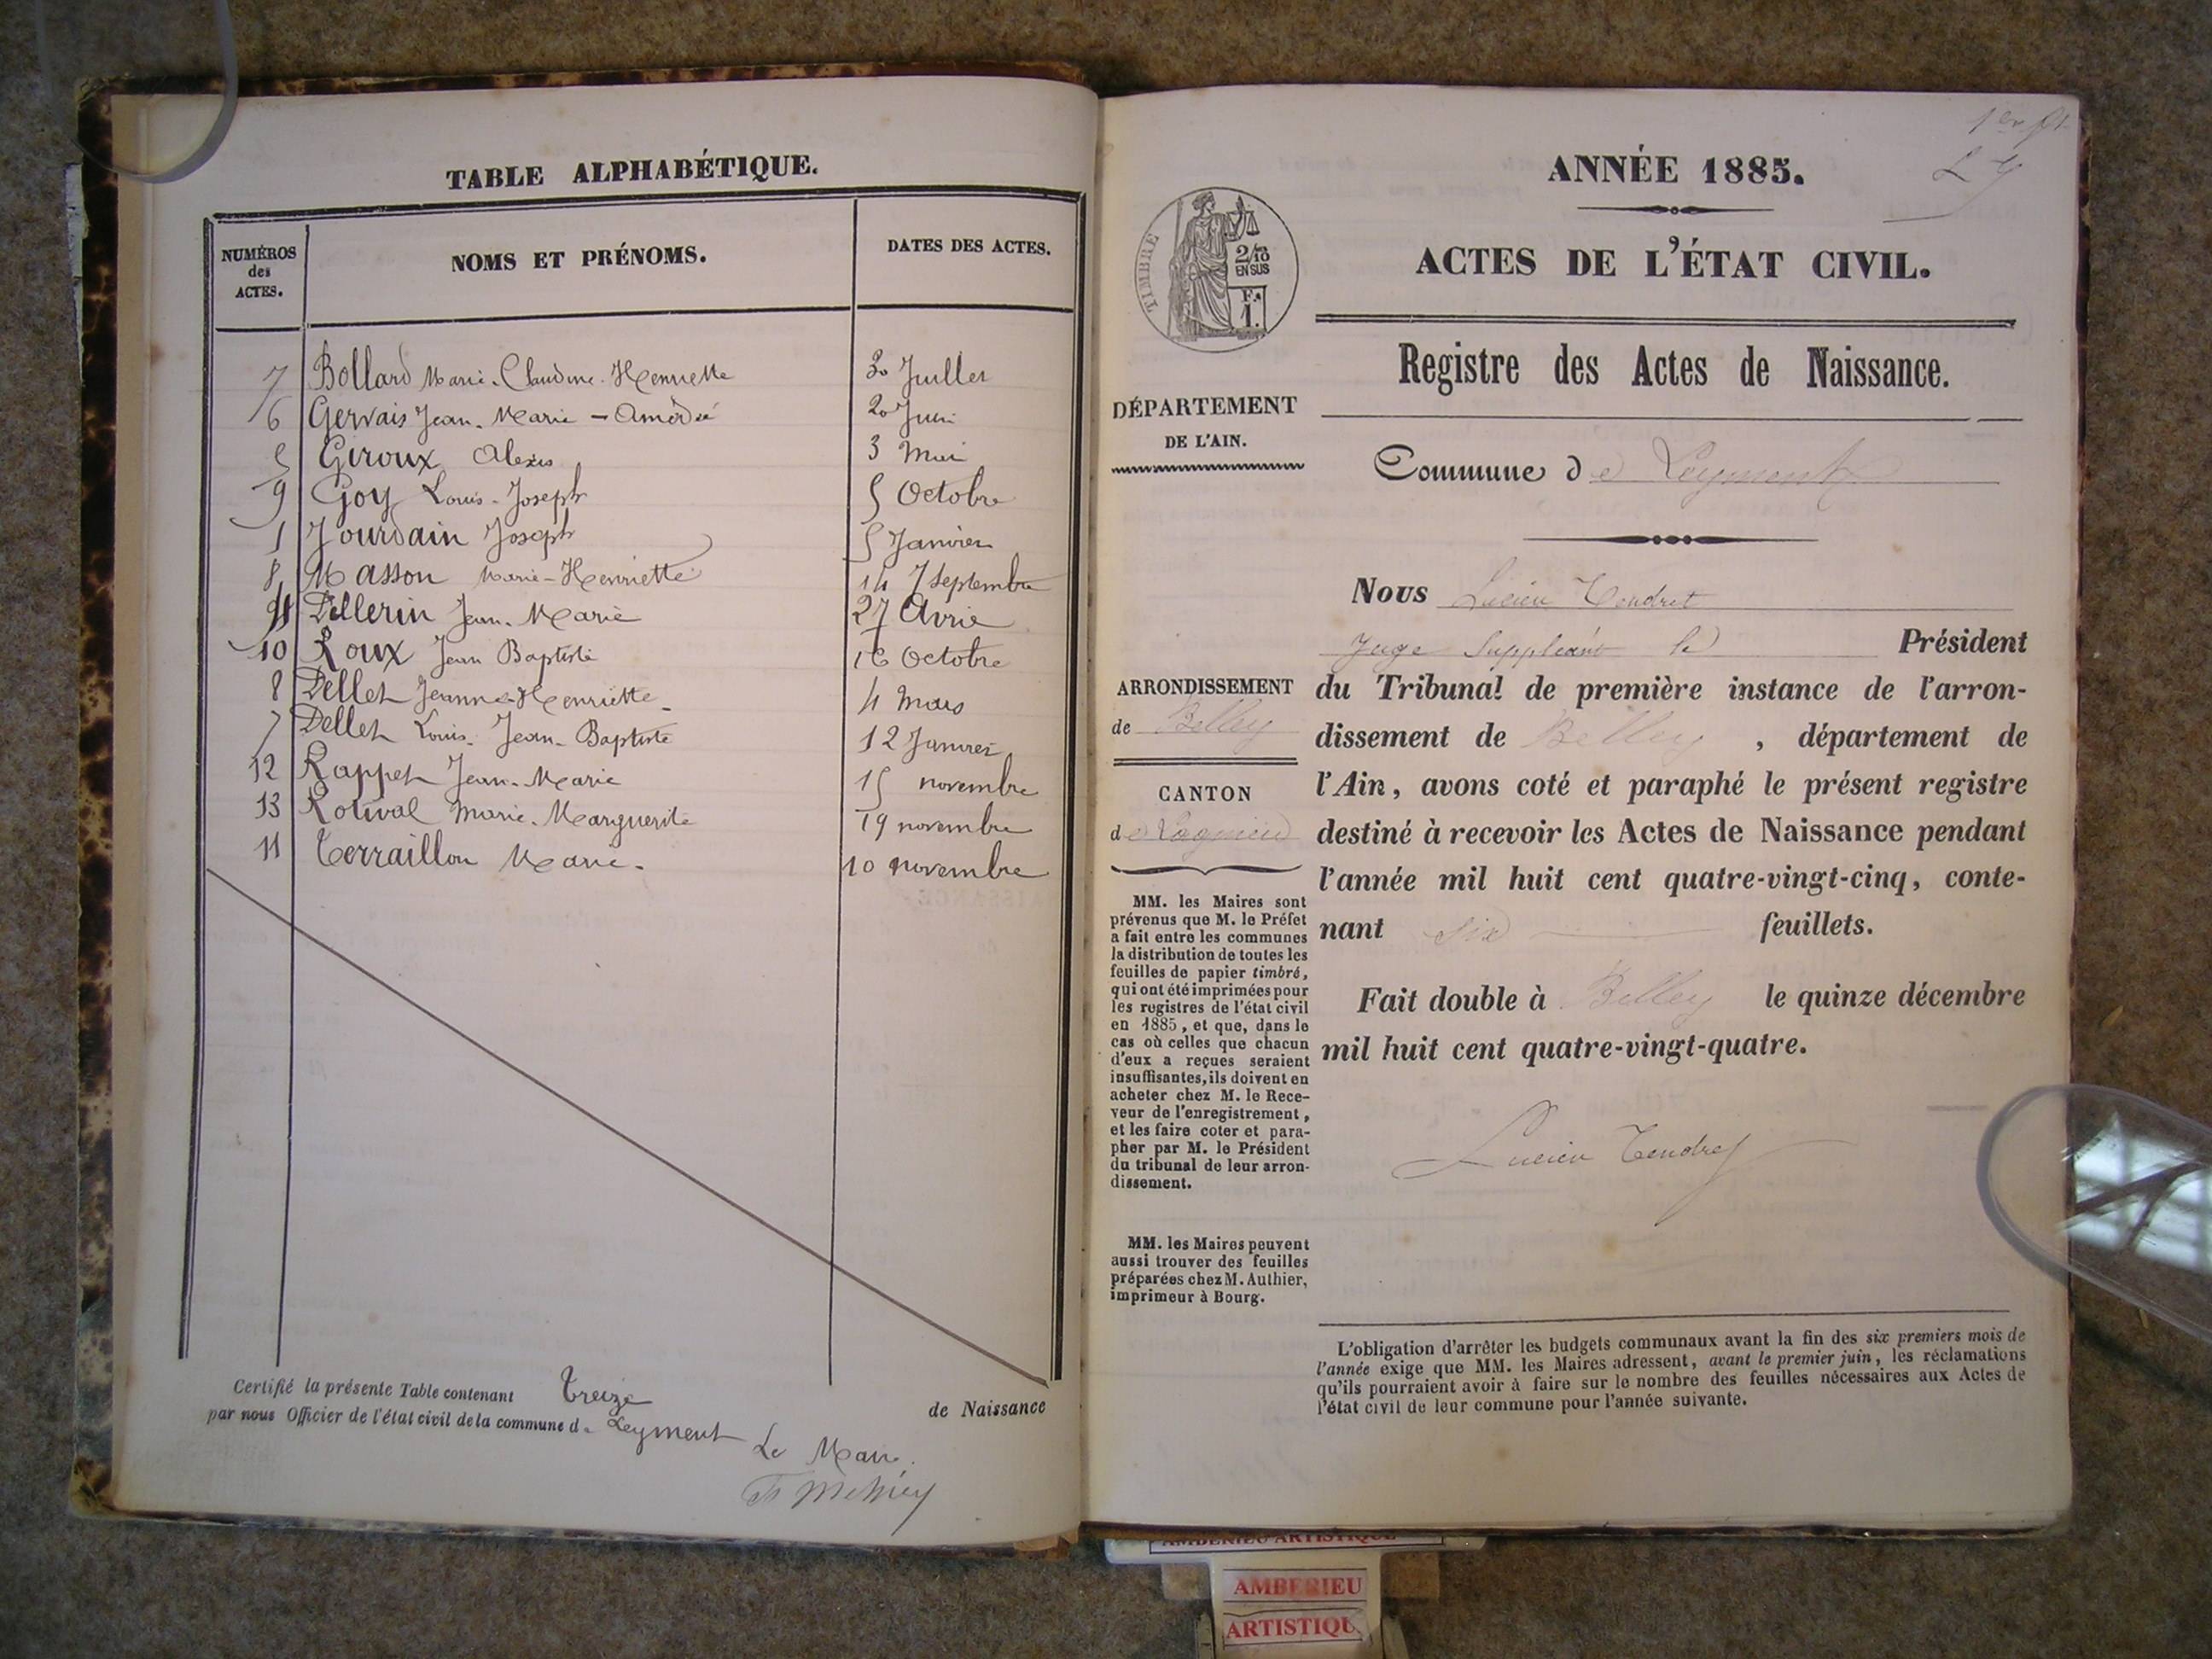 TABLE ALPHABÉTIQUE.
NUMÉROS des ACTES.
NOMS ET PRÉNOMS.
DATES DES ACTES.
7 Bollard Marie-Claudine-Henriette 30 Juillet
6 Gervais Jean-Marie-Amédée 20 Juin
5 Giroux Alexis 3 Mai
9 Goy Louis-Joseph 5 Octobre
1 Jourdain Joseph 5 Janvier
8 Masson Marie-Henriette 14 7 Septembre
4 Pellerin Jean-Marie 27 Avril
10 Roux Jean Baptiste 16 Octobre
Pellet Jeanne-Henriette 4 Mars
Pellet Louis-Jean-Baptiste 12 Janvier
12 Rappet Jean-Marie 15 novembre
13 Rotival Marie-Marguerite 19 novembre
11 Terraillon Marie. 10 novembre
Certifié la présente Table contenant treize de Naissance
par nous Officier de l'état civil de la commune de Leyment
Le Maire.
1er
ANNÉE 1885.
ACTES DE L'ÉTAT CIVIL.
TIMBRE
2/10 EN SUS
1.
Registre des Actes de Naissance.
DÉPARTEMENT
DE L'AIN.
Commune de Leyment
Nous Lucien Tendret
Juge Suppléant le Président
du Tribunal de première instance de l'arron-
dissement de Belley, département de
l'Ain, avons coté et paraphé le présent registre
destiné à recevoir les Actes de Naissance pendant
l'année mil huit cent quatre-vingt-cinq, conte-
nant six feuillets.
Fait double à Belley le quinze décembre
mil huit cent quatre-vingt-quatre.
Lucien Tendret
ARRONDISSEMENT
de Belley
CANTON
de Lagnieu
MM. les Maires sont
prévenus que M. le Préfet
a fait entre les communes
la distribution de toutes les
feuilles de papier timbré,
qui ont été imprimées pour
les registres de l'état civil
en 1885, et que, dans le
cas où celles que chacun
d'eux a reçues seraient
insuffisantes, ils doivent en
acheter chez M. le Rece-
veur de l'enregistrement,
et les faire coter et para-
pher par M. le Président
du tribunal de leur arron-
dissement.
MM. les Maires peuvent
aussi trouver des feuilles
préparées chez M. Authier,
imprimeur à Bourg.
L'obligation d'arrêter les budgets communaux avant la fin des six premiers mois de
l'année exige que MM. les Maires adressent, avant le premier juin, les réclamations
qu'ils pourraient avoir à faire sur le nombre des feuilles nécessaires aux Actes de
l'état civil de leur commune pour l'année suivante.
AMBERIEU ARTISTIQUE
AMBERIEU
ARTISTIQU